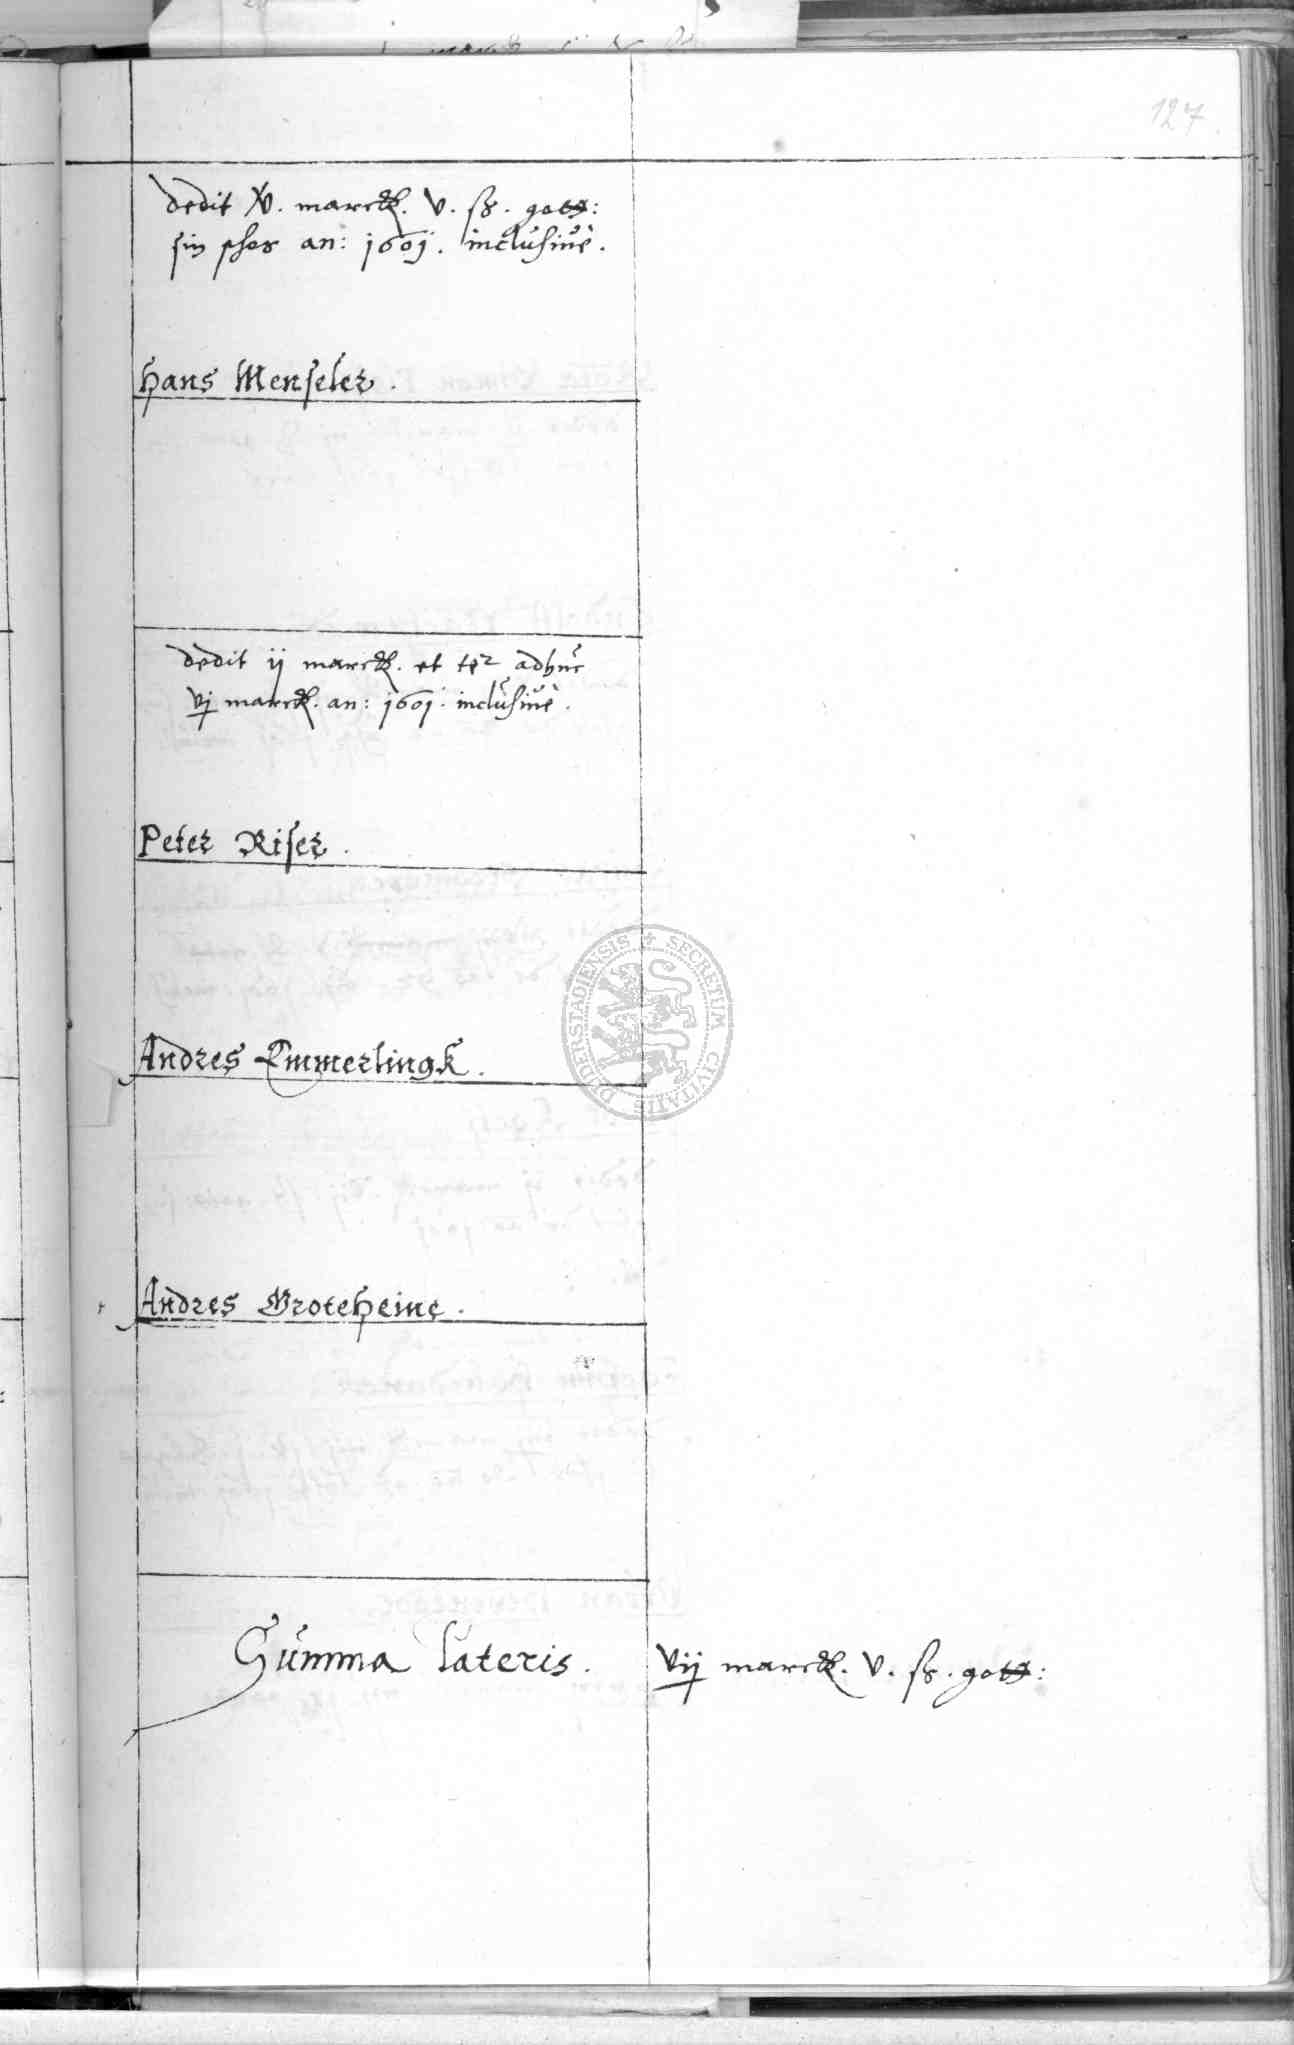 127.
dedit marck. v. ß. gott:
sin an: 1601. inclusiue.
Hans Menseler.
dedit ij marck. et adhuc
vj marck. an: 1601. inclusiue.
Peter Riser.
Andres Emmerlingk.
Andres Groteheine.
Summa lateris. vij marck. v. ß. gott:
SECRETUM CIVITATIS DUDERSTADIENSIS